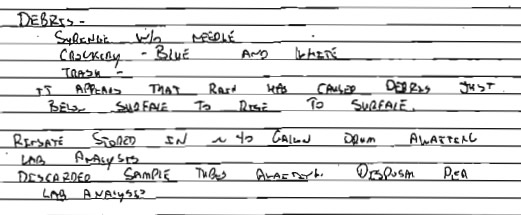 DEBRIS -
SYRINGE W/O NEEDLE
CROCKERY - BLUE AND WHITE
TRASH -
IT APPEARS THAT RAIN HAS CAUSED DEBRIS JUST
BELOW SURFACE TO RISE TO SURFACE.
RINSATE STORED IN ~ 40 GALLON DRUM AWAITING
LAB ANALYSIS
DISCARDED SAMPLE TUBES AWAITING DISPOSAL PER
LAB ANALYSIS